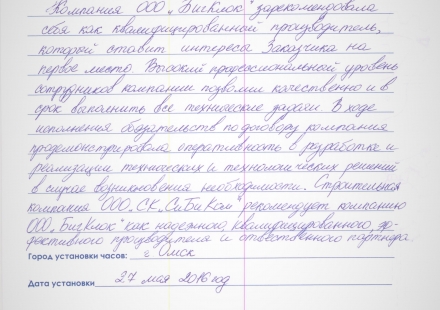 Компания ООО „БигКлок" зарекомендовала
себя как квалифицированный производитель,
который ставит интересы Заказчика на
первое место. Высокий профессиональный уровень
сотрудников компании позволил качественно и в
срок выполнить все технические задачи. В ходе
исполнения обязательств по договору компания
продемонстрировала оперативность в разработке и
реализации технических и технологических решений
в случае возникновения необходимости. Строительная
компания "ООО „СК „СиБиКом" рекомендует компанию
ООО „БигКлок" как надежного квалифицированного, эф-
фективного производителя и ответственного партнера.
Город установки часов: г. Омск
Дата установки 27 мая 2016 год